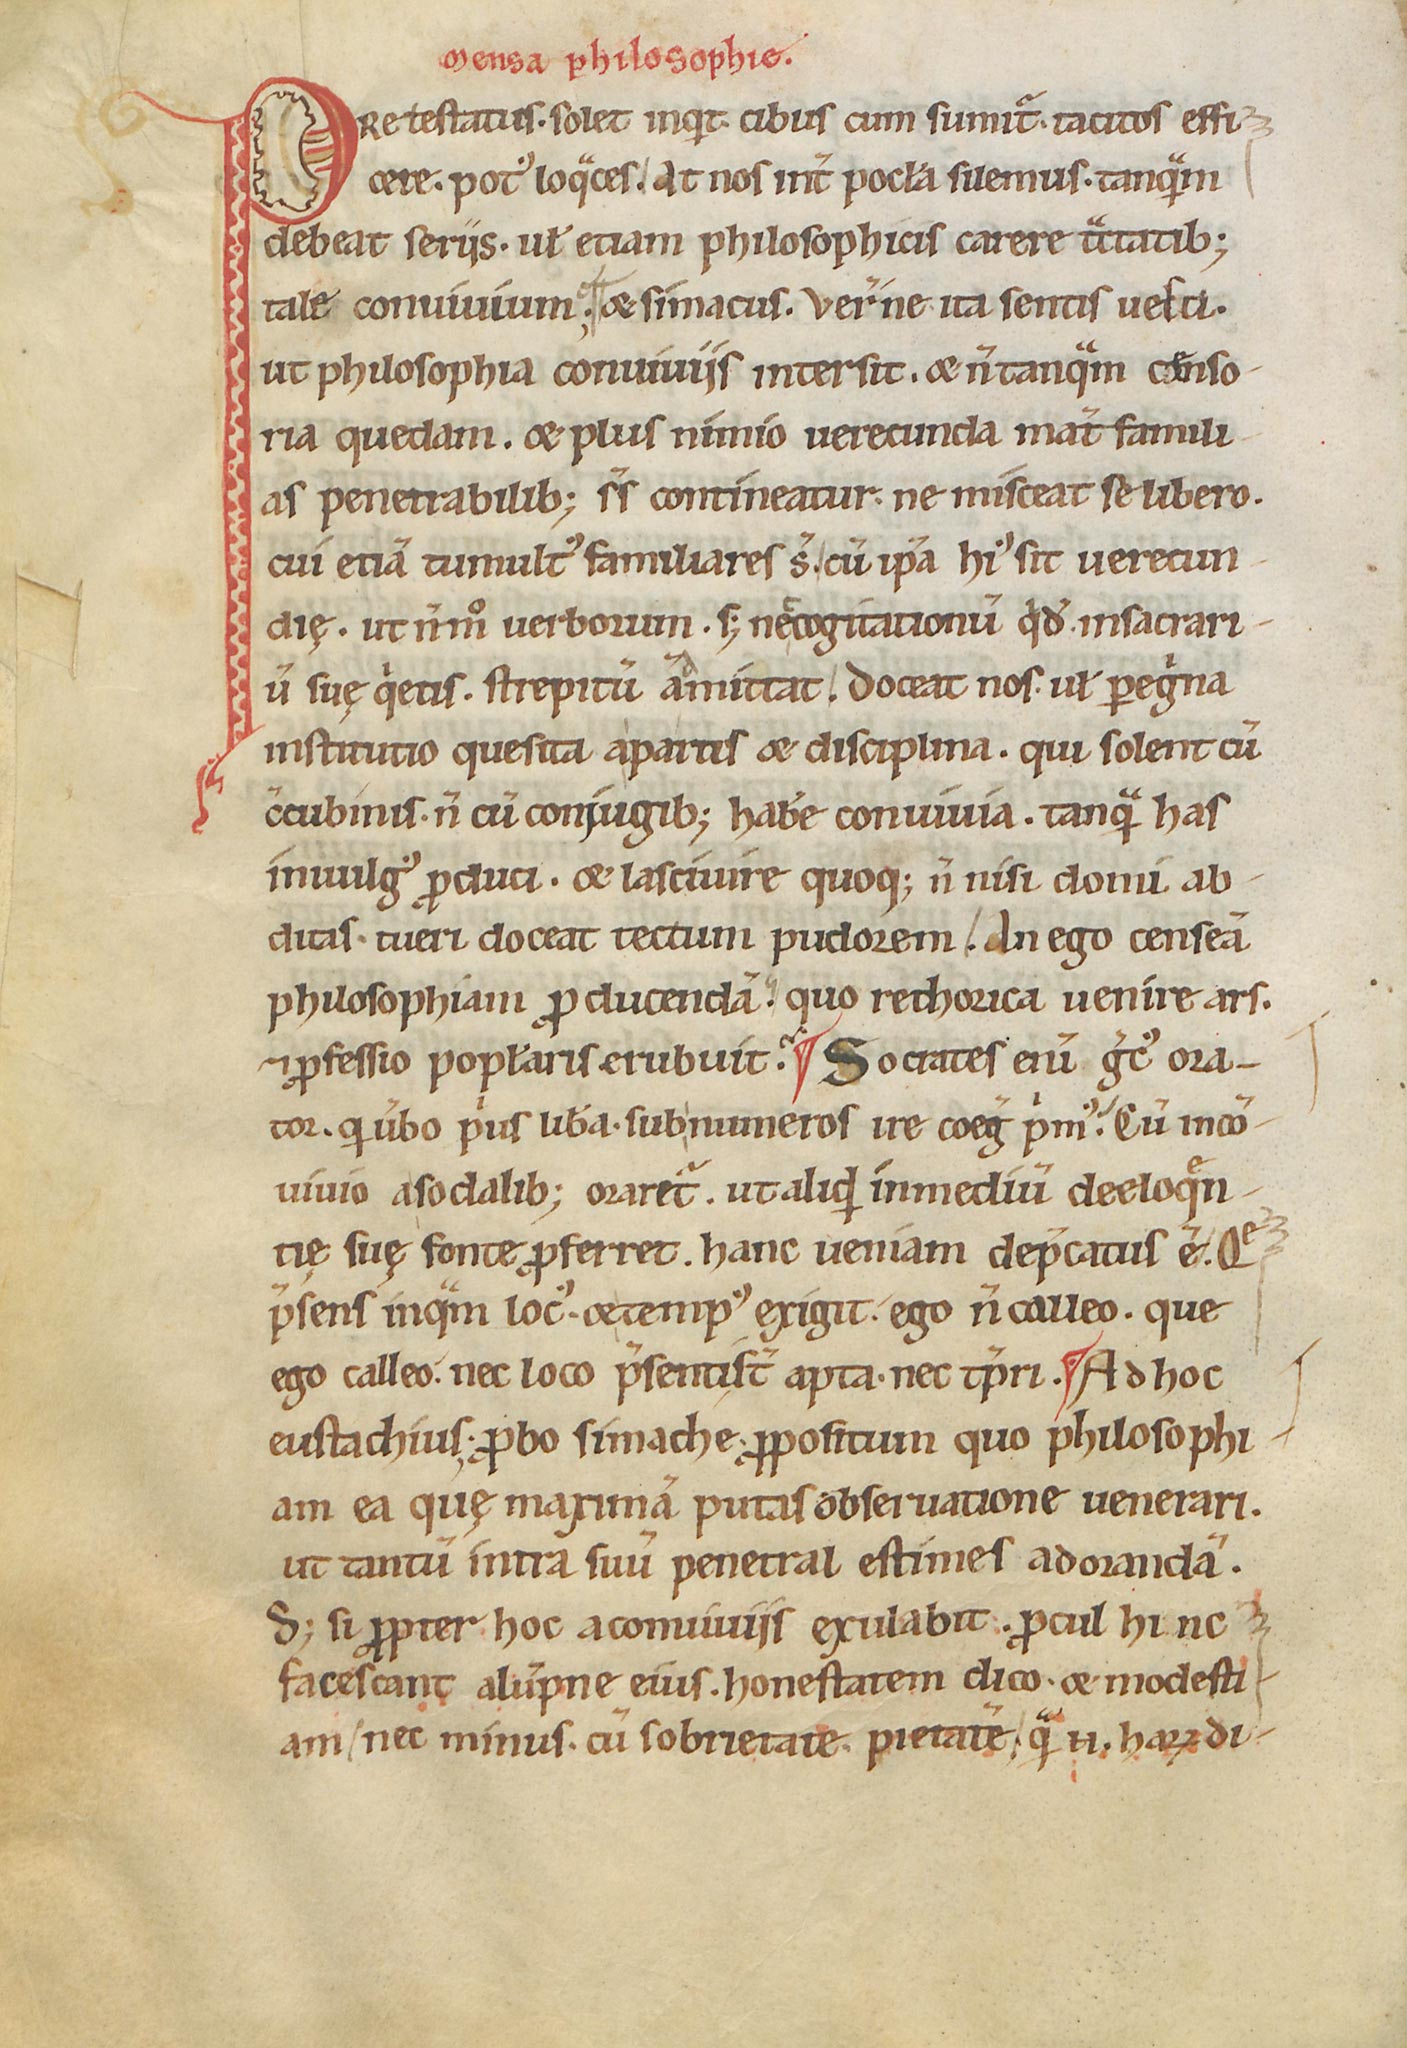 Mensa philosophie.
PRetestatus. solet inqͥt. cibus cum sumit᷑. tacitos effi
cere. potꝰ loqͣces. At nos int̄ pocła silemus. tanqͣm
debeat seriis. uł etiam philosophicis carere tͣctatib;
tale conuiuium. & simacus. Ver̄ ne ita sentis uecti.
ut philosophia conuiuiis intersit. & n̄ tanqͣm censo-
ria quedam. & plus nimio uerecunda mat̄ famili-
as penetrabilib; s̄s contineatur. ne misceat se libero.
cui etiā tumultꝰ familiares s̄. cū ip̄a hꝰ sit uerecun-
dię. ut n̄ mͦ uerborum. s; nec cogitationū qͥd̄. insacrari-
ū suę qͥetis. strepitū am̄ittat. Doceat nos. uł peͥgͥna
institutio quesita apartis & disciplina. qui solent cū
c̄cubinis. n̄ cū conjugib; hab̄e conuiuia. tanqͣ has
inuulgꝰ ꝓduci. & lasciuire quoq; n̄ nisi domi ab-
ditas. tueri doceat tectum pudorem. An ego censeā
philosophiam ꝓducendā. quo rethorica uenire ars.
⁊ ꝓfessio popłaris erubuit. Socrates enī gͥcꝰ ora-
tor. qͥ ūbo pͥus lib̄a. sub numeros ire coeḡ pͥmꝰ. Cū incō-
uiuio asodalib; oraret᷑. ut aliqͥd inmediū deeloqͤn-
tię suę fonte ꝓferret. hanc ueniam dep̄catus ē. Qͤ
p̄sens inqͣm locꝰ. & tempꝰ exigit. ego n̄ calleo. que
ego calleo. nec loco p̄senti s̄t apta. nec tp̄ri. Ad hoc
eustachius; ꝓbo simache. ꝓpositum quo philosophi
am ea quę maximā putas obseruatione uenerari.
ut tantū intra suū penetral estimes adorandā.
S; si ꝓpter hoc aconuiuiis exulabit. ꝓcul hinc
facescant alūpne eius. honestatem dico. & modesti-
am. nec minus. cū sobrietate pietatē. qͣ n. haꝝ di-